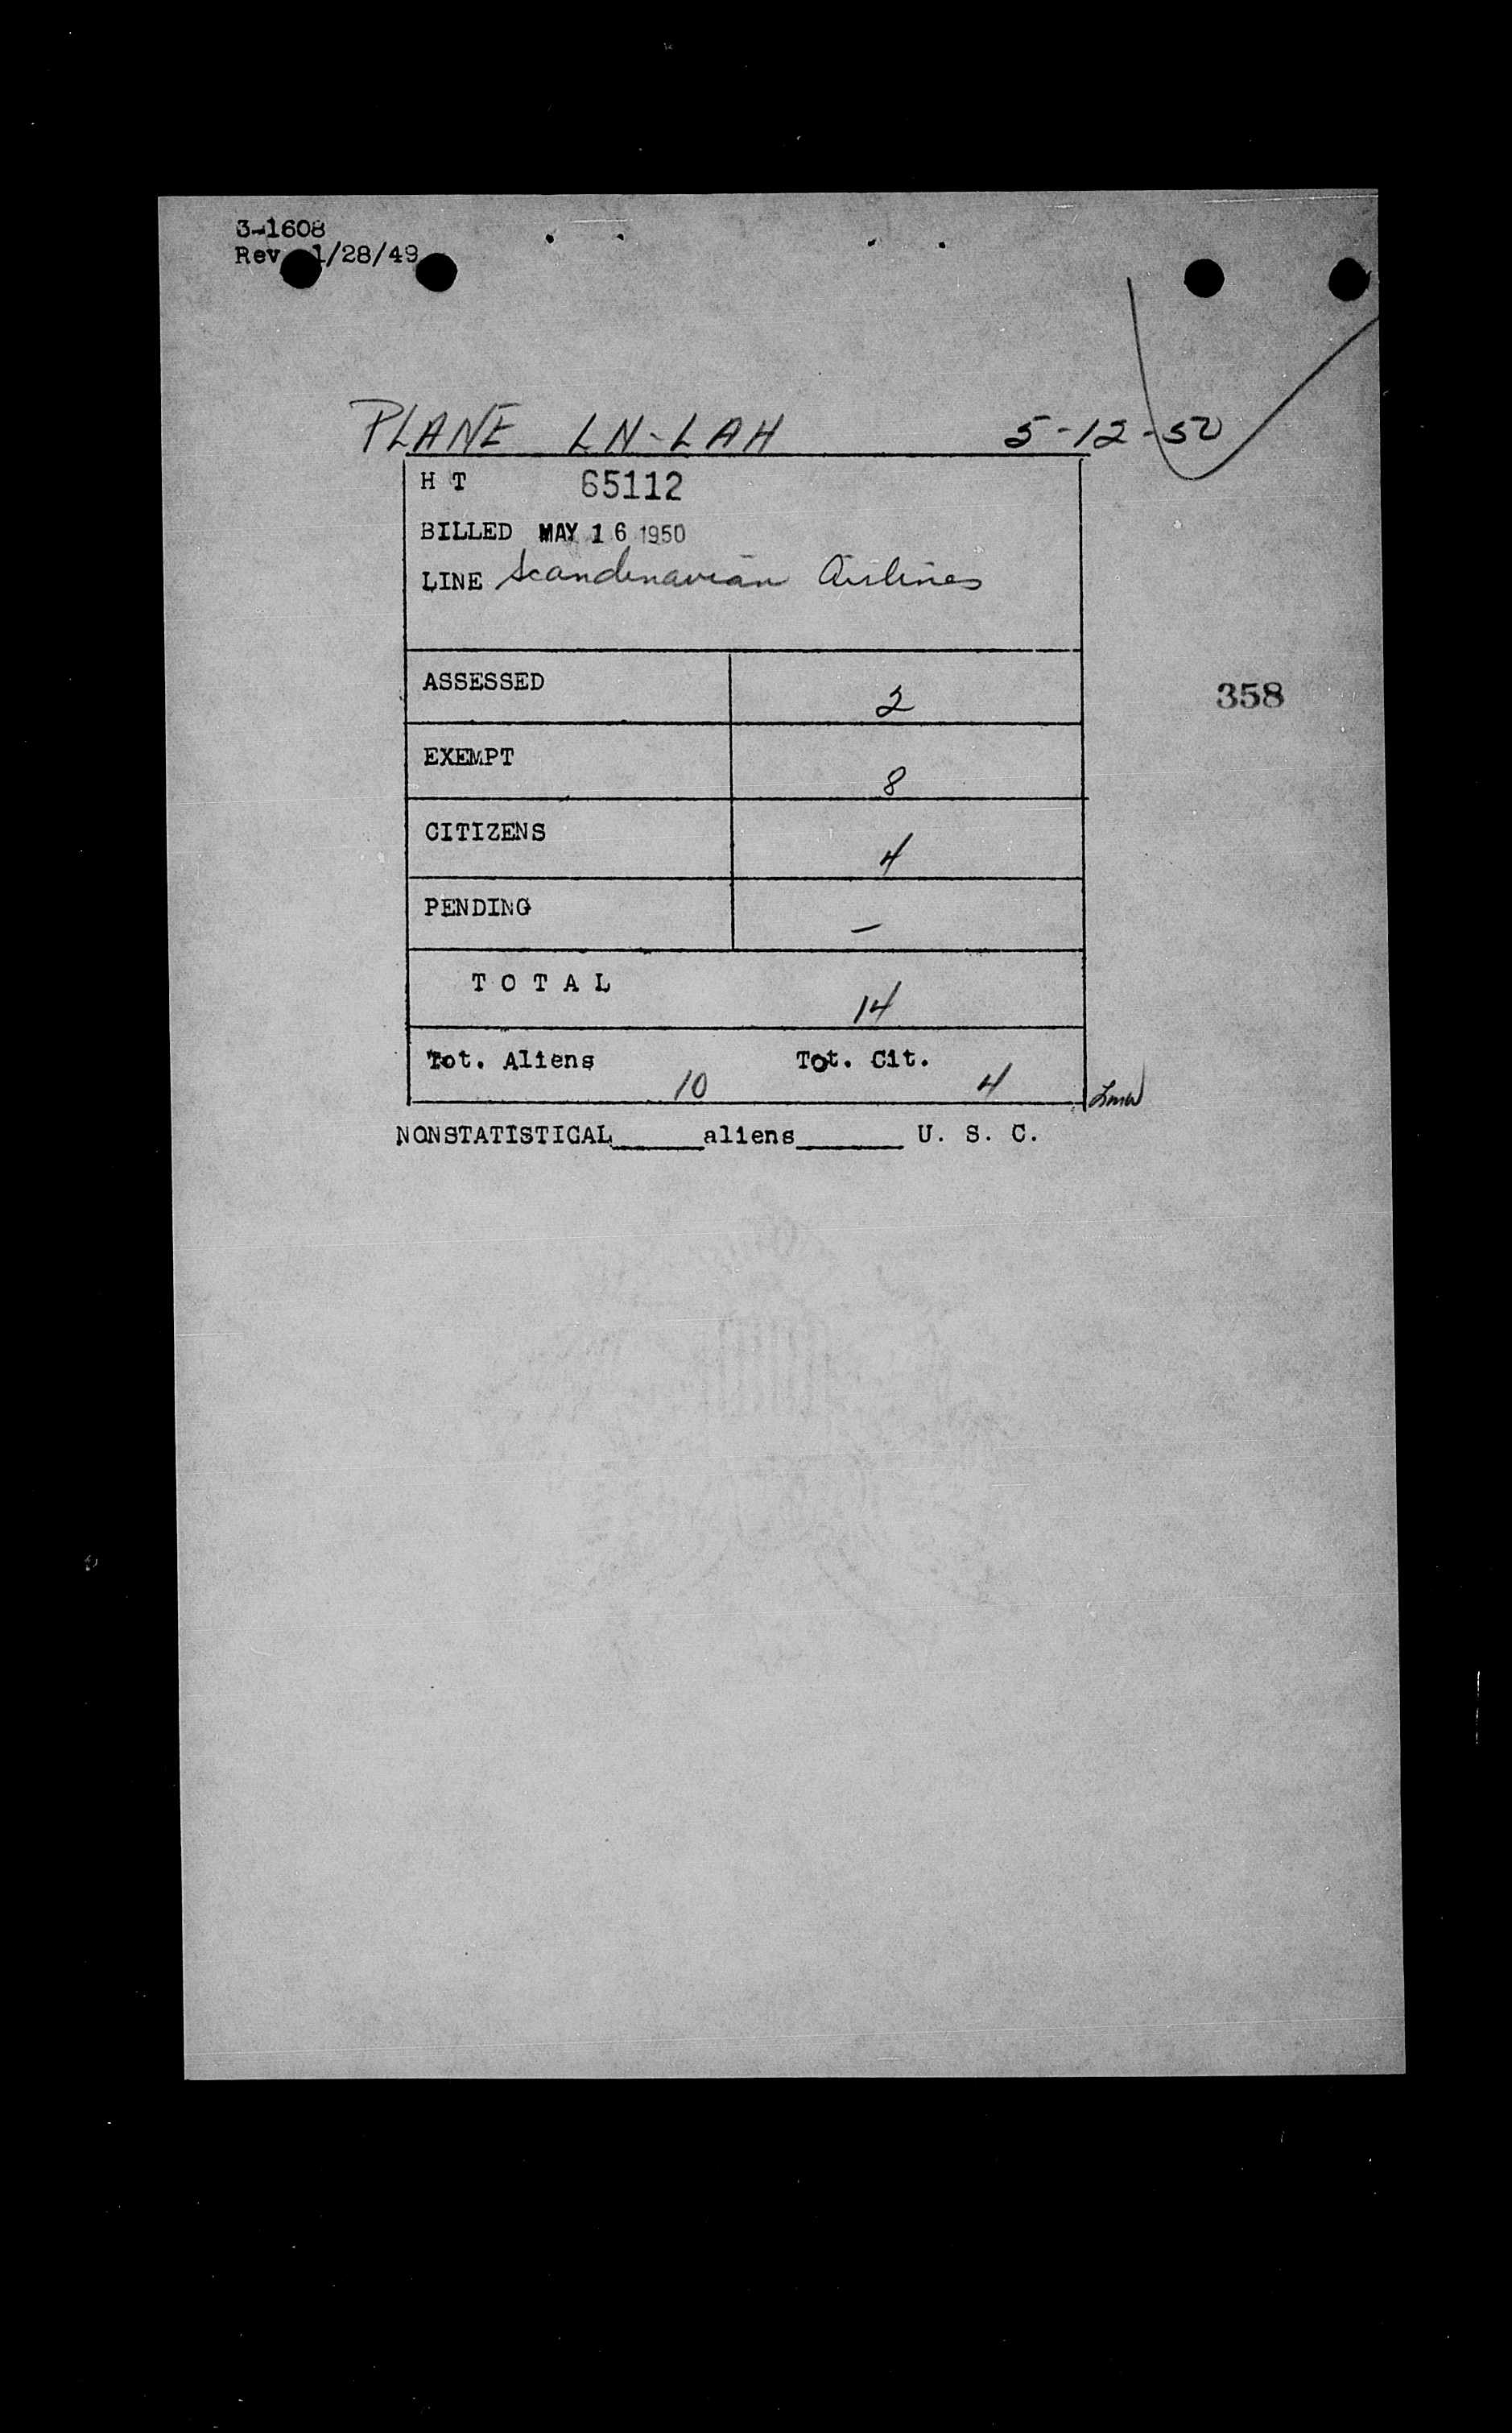 3-1608
Rev. 1/28/49
PLANE LN-LAH 5-12-50
H T 65112
BILLED MAY 16 1950
LINE Scandinavian Airlines
ASSESSED 2
358
EXEMPT 8
CITIZENS 4
PENDING –
T O T A L 14
Tot. Aliens 10 Tot. Cit. 4
NONSTATISTICAL______aliens_______ U. S. C.